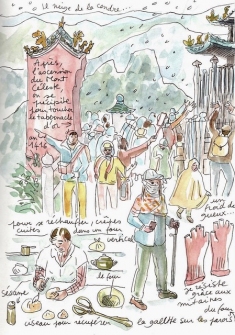 il neige de la cendre...
Après,
l'ascension
du Mont
Céleste,
on se
précipite
pour toucher
le tabernacle
d'or
an
1416
un froid de
gueux...
pour se réchauffer, crêpes
cuites dans un four
vertical
sésame
le four
résiste
grâce aux
mitaines
du four
ciseau pour récupérer la galette sur les parois